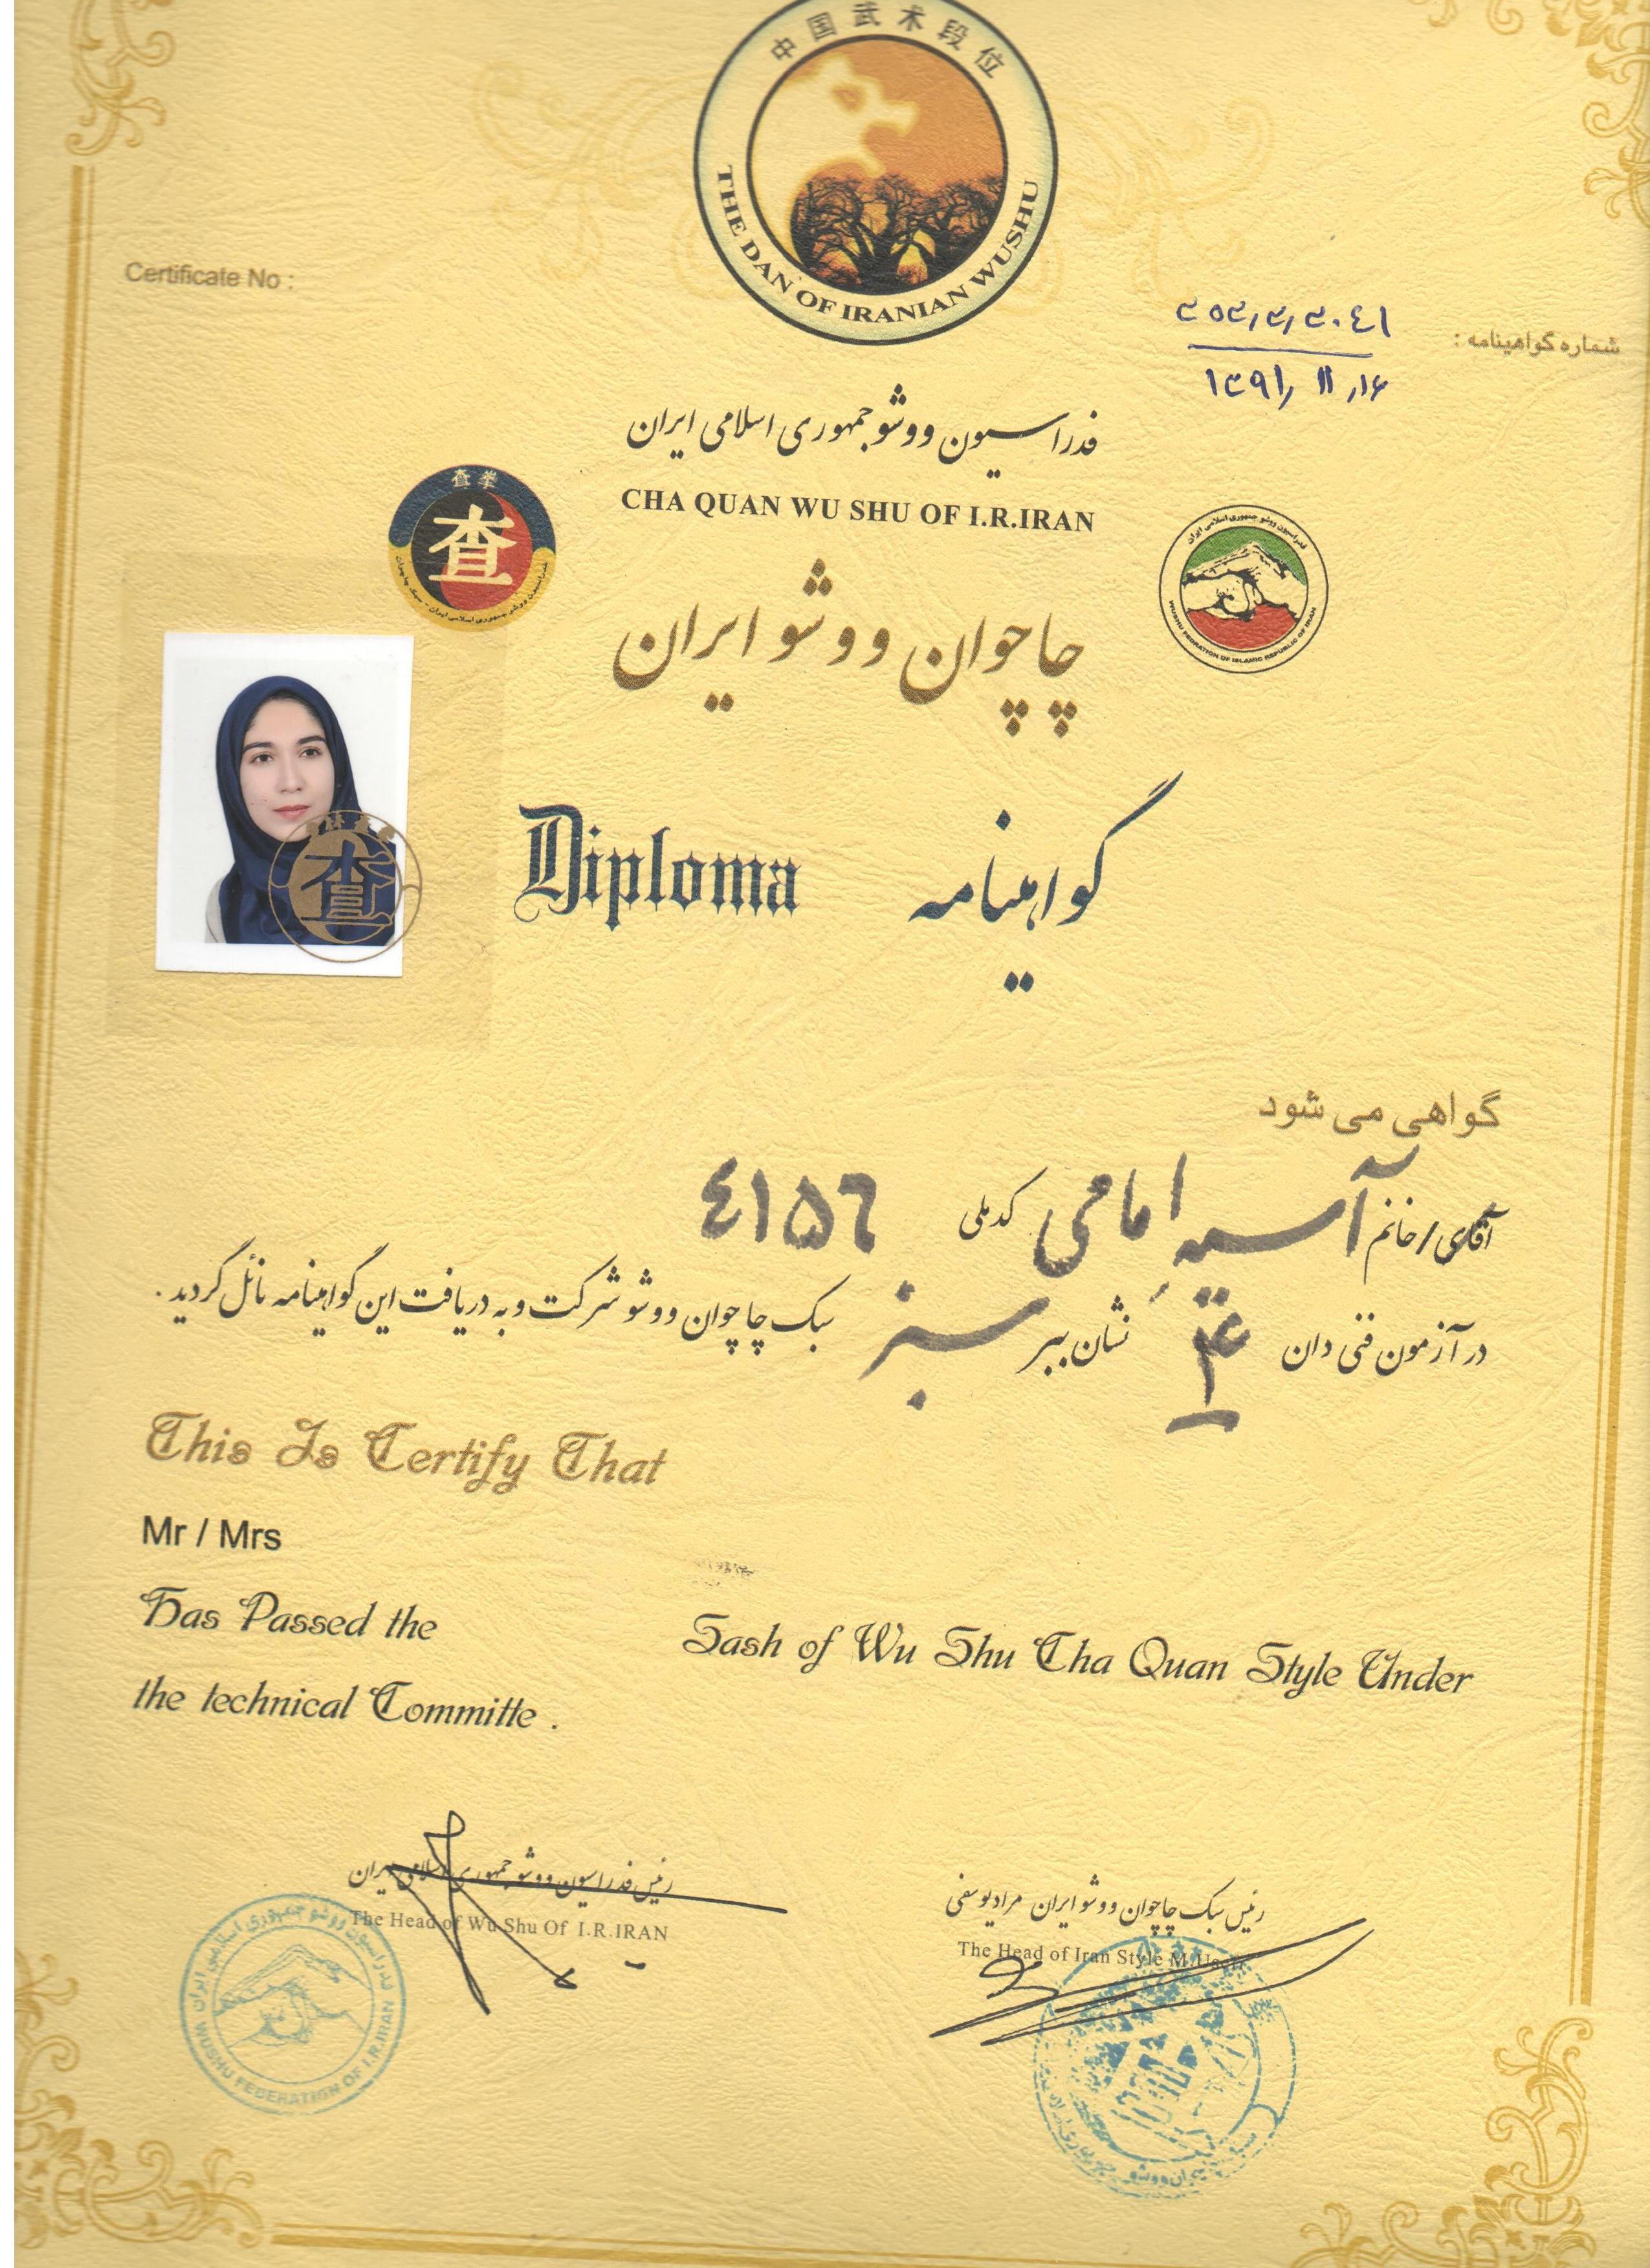 中国武术段位
THE DAN OF IRANIAN WUSHU
Certificate No :
شماره گواهینامه :
۱۳۹۱/۱۱/۱۶
فدراسیون ووشو جمهوری اسلامی ایران
CHA QUAN WU SHU OF I.R.IRAN
查拳
查
فدراسیون ووشو جمهوری اسلامی ایران
WUSHU FEDRATION OF ISLAMIC REPUBLIC OF IRAN
چاچوان ووشو ایران
查
Diploma گواهینامه
گواهی می شود
آقای / خانم آسیه امامی کد ملی ٤١٥٦
در آزمون فنی دان نشان ببر سبز سبک چاچوان ووشو شرکت و به دریافت این گواهینامه نائل گردید .
This Is Certify That
Mr / Mrs
Has Passed the Sash of Wu Shu Cha Quan Style Under
the technical Committe .
رئیس فدراسیون ووشو جمهوری اسلامی ایران
The Head of Wu Shu Of I.R.IRAN
رئیس سبک چاچوان ووشو ایران مراد یوسفی
The Head of Iran Style M.
فدراسیون ووشو جمهوری اسلامی ایران
WUSHU FEDERATION OF I.R.IRAN